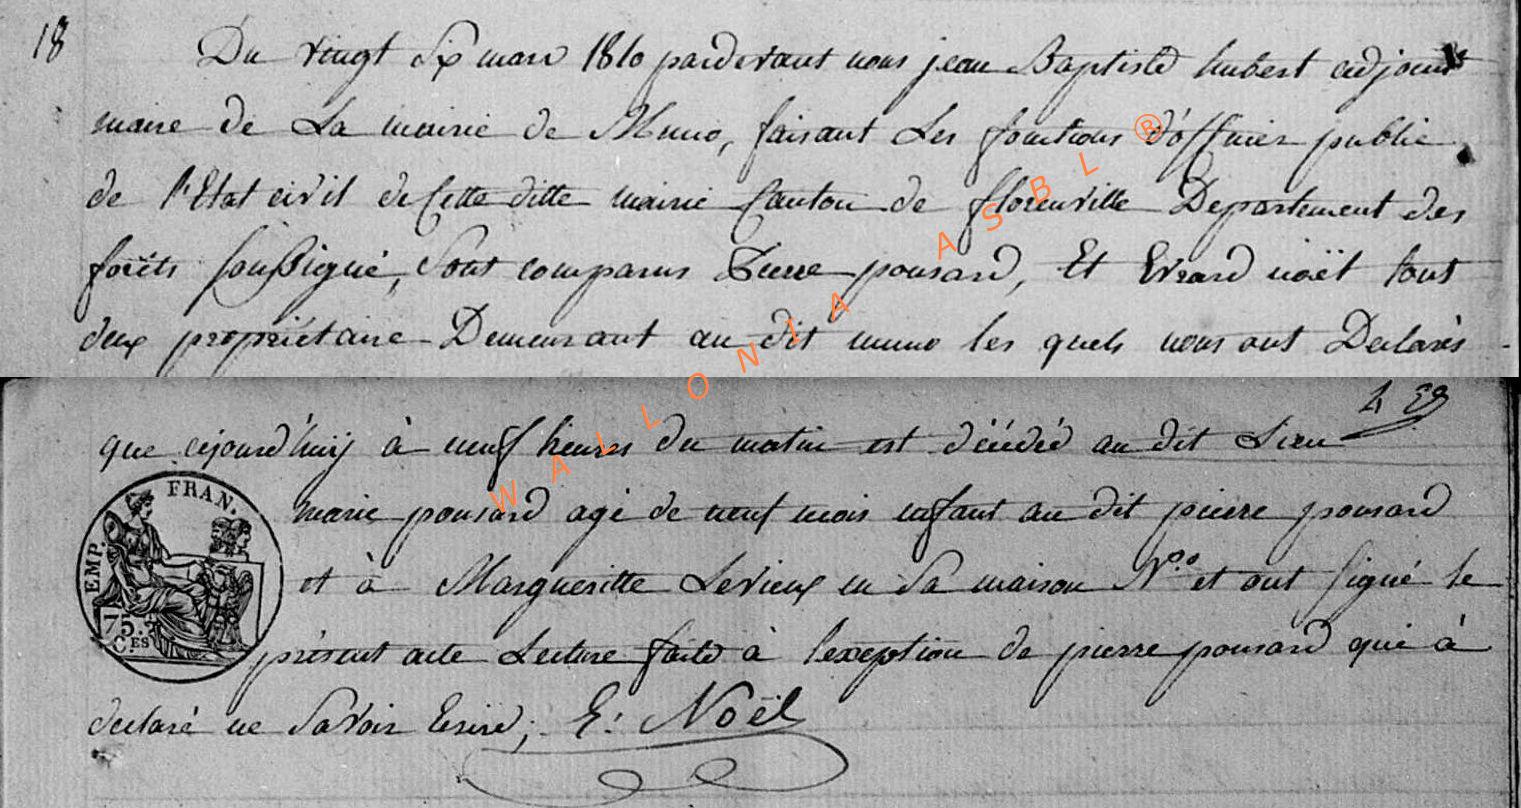 18
Du vingt six mars 1810 pardevant nous jean Baptiste hubert adjoint
maire de La mairie de Muno, faisant Les fonctions d'officier public
de l'Etat civil de Cette ditte mairie Canton de florenville Departement des
forêts soussigné, Sont comparus Pierre ponsard, Et Evrard noël tout
deux propriétaire Demeurant au dit muno les quels nous ont Declarés
que cejourd'huij à neuf heures du matin est décédé au dit Lieu
marie ponsard agé de neuf mois enfant au dit pierre ponsard
et à Margueritte Levieux en Sa maison N.º et ont signé le
présent acte Lecture faite à l'exception de pierre ponsard qui à
declaré ne Savoir Ecrire; E: Noël
EMP. FRAN.
75
C.ES
WALLONIA ASBL ®